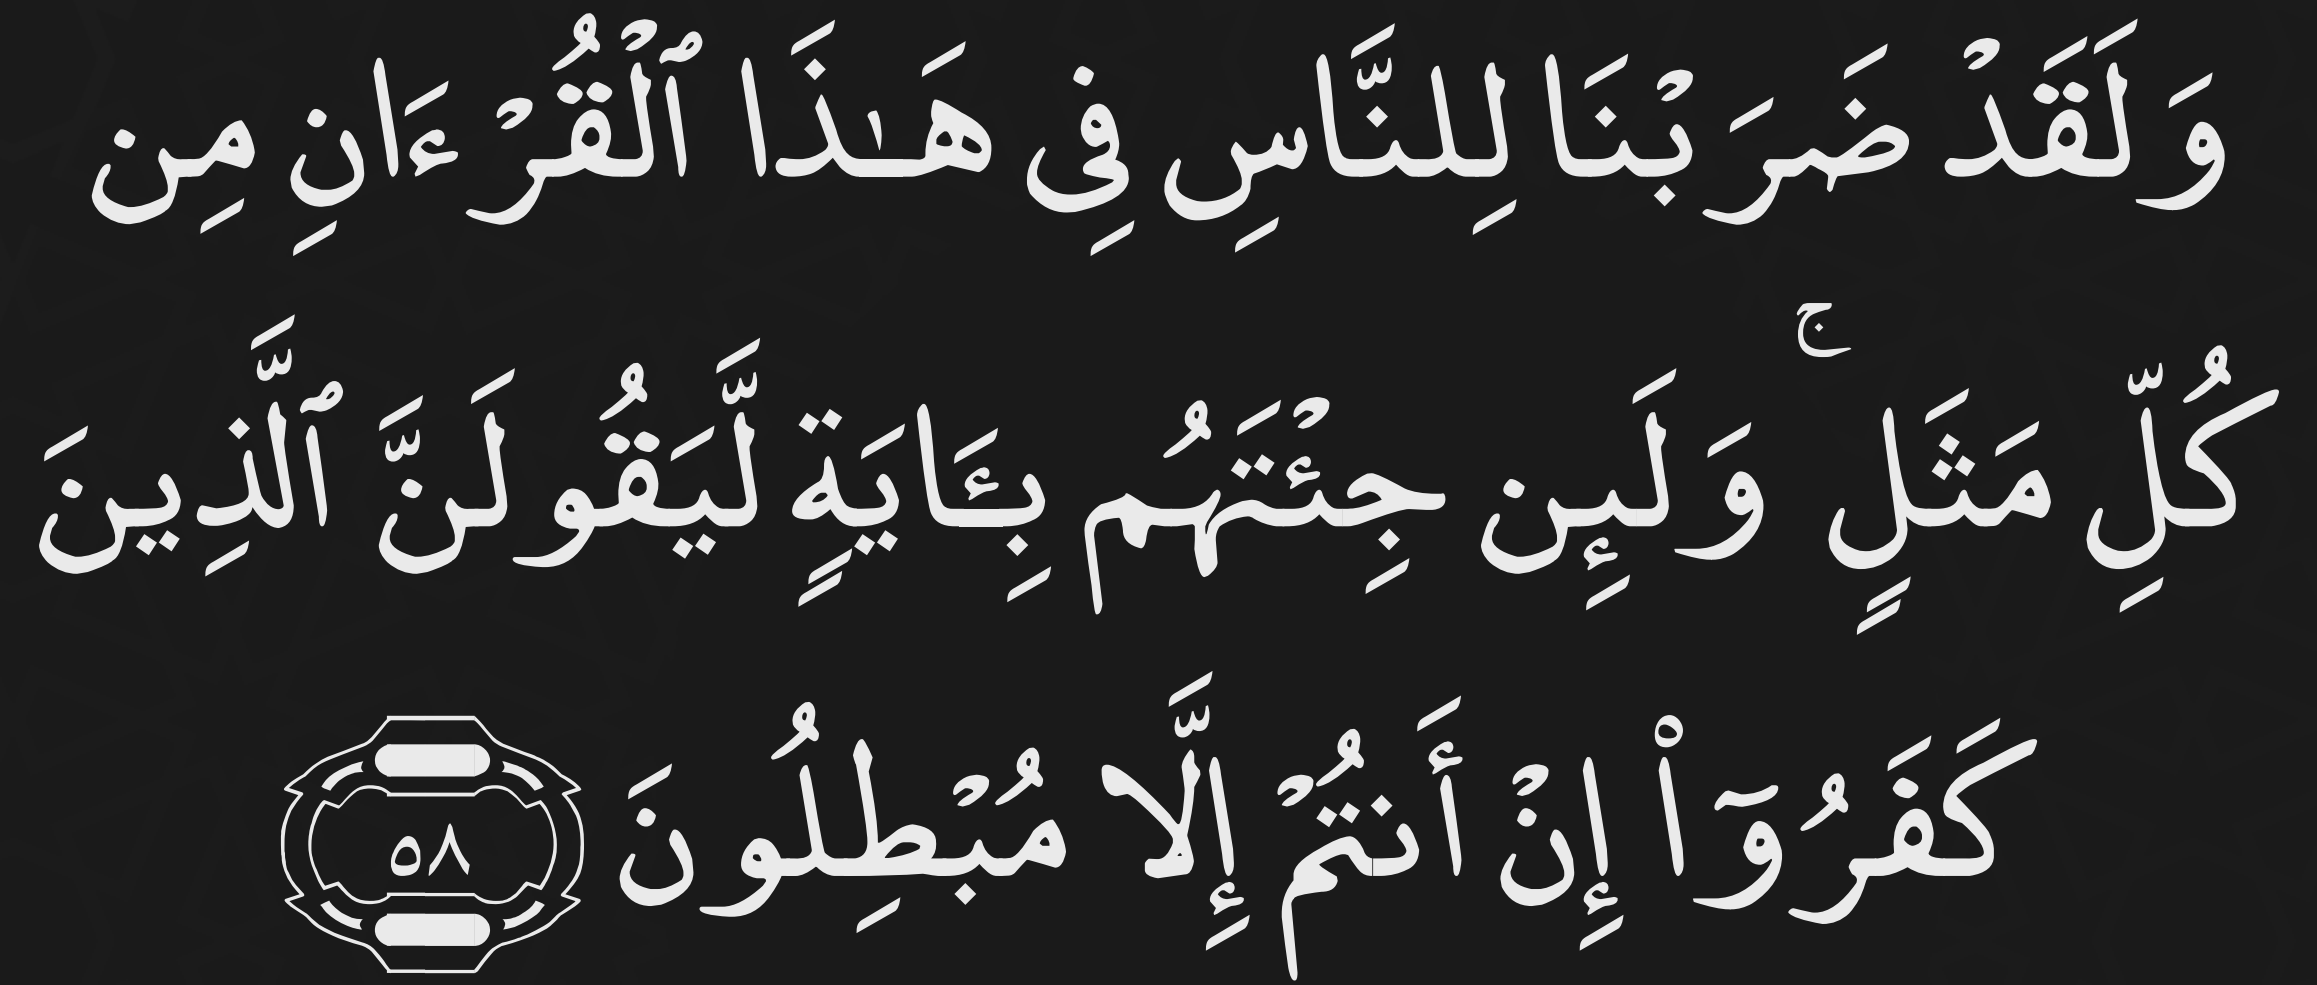 وَلَقَدْ ضَرَبْنَا لِلنَّاسِ فِي هَـٰذَا ٱلْقُرْءَانِ مِن
كُلِّ مَثَلٍ ۚ وَلَئِن جِئْتَهُم بِـَٔايَةٍ لَّيَقُولَنَّ ٱلَّذِينَ
كَفَرُوٓا۟ إِنْ أَنتُمْ إِلَّا مُبْطِلُونَ ٥٨